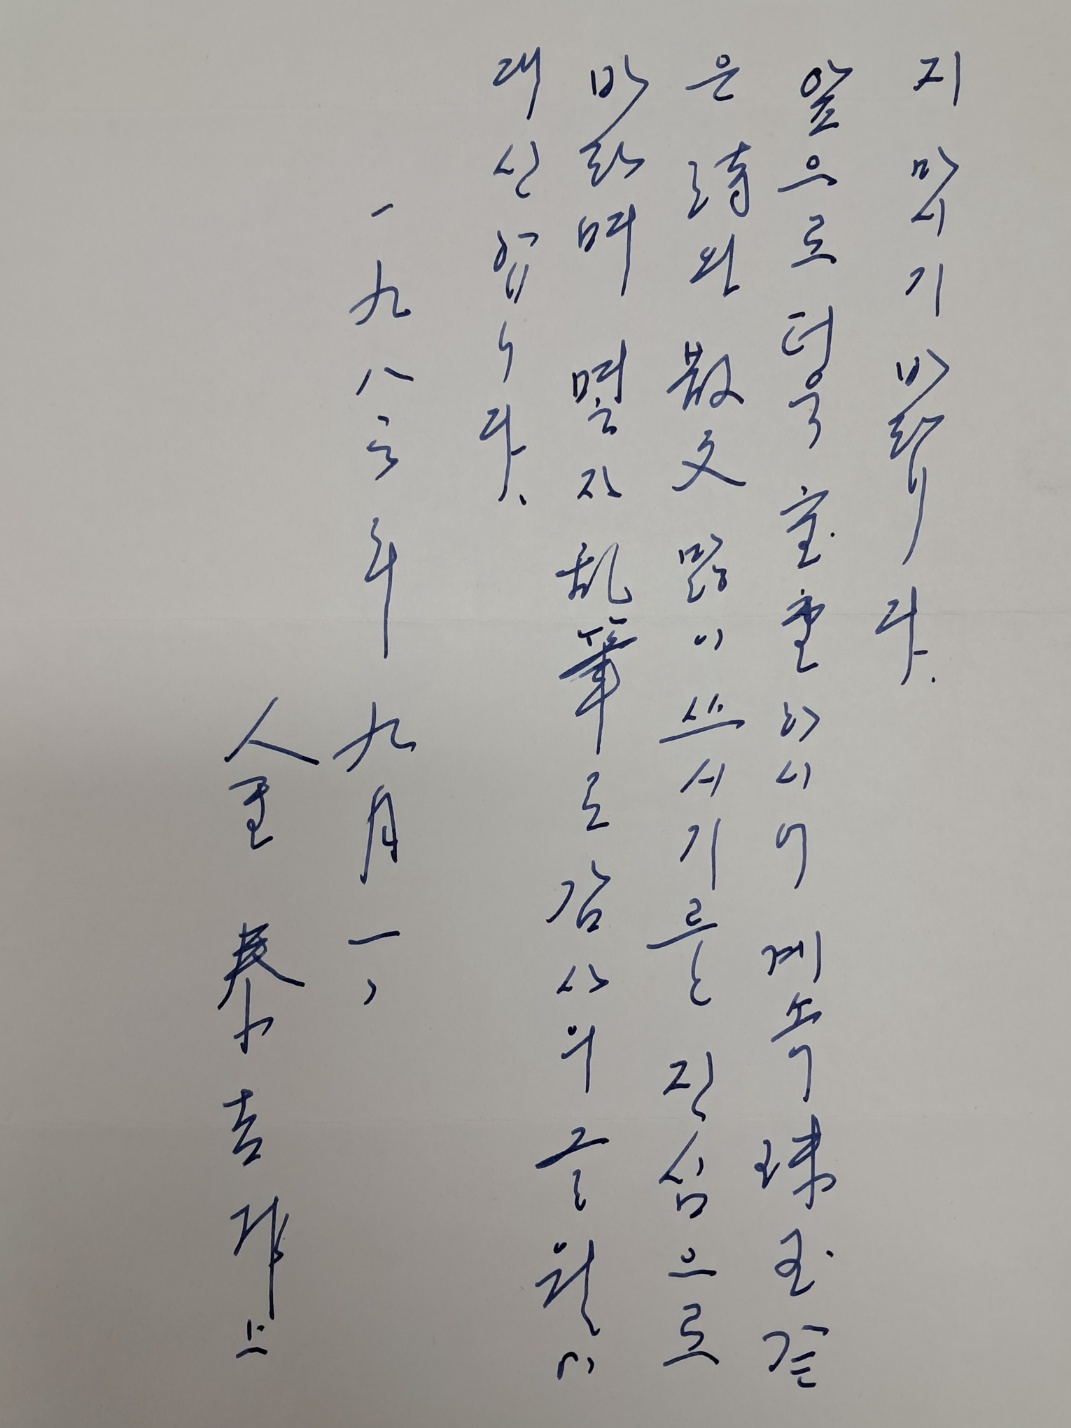 지 마시기 바랍니다.
앞으로 더욱 宝重하시어 계속 珠玉 같
은 詩와 散文 많이 쓰시기를 진심으로
바라며 몇 자 亂筆로 감사의 글월
대신합니다.
一九八三年 九月 一
拜上